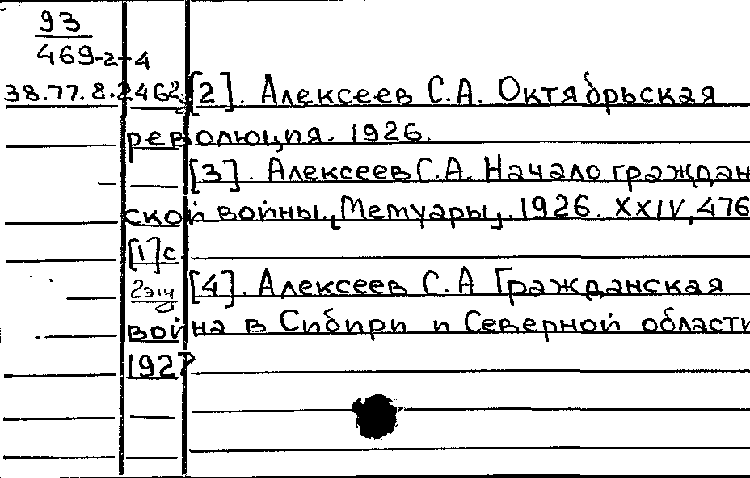 93
469-2-4
38.77.8.2462 [2]. Алексеев С.А. Октябрьская
революция. 1926.
[3]. Алексеев С.А. Начало граждан
ской войны. „Мемуары„. 1926. XXIV, 476
[1] с.
2 [4]. Алексеев С.А Гражданская
война в Сибири и Северной области
192?